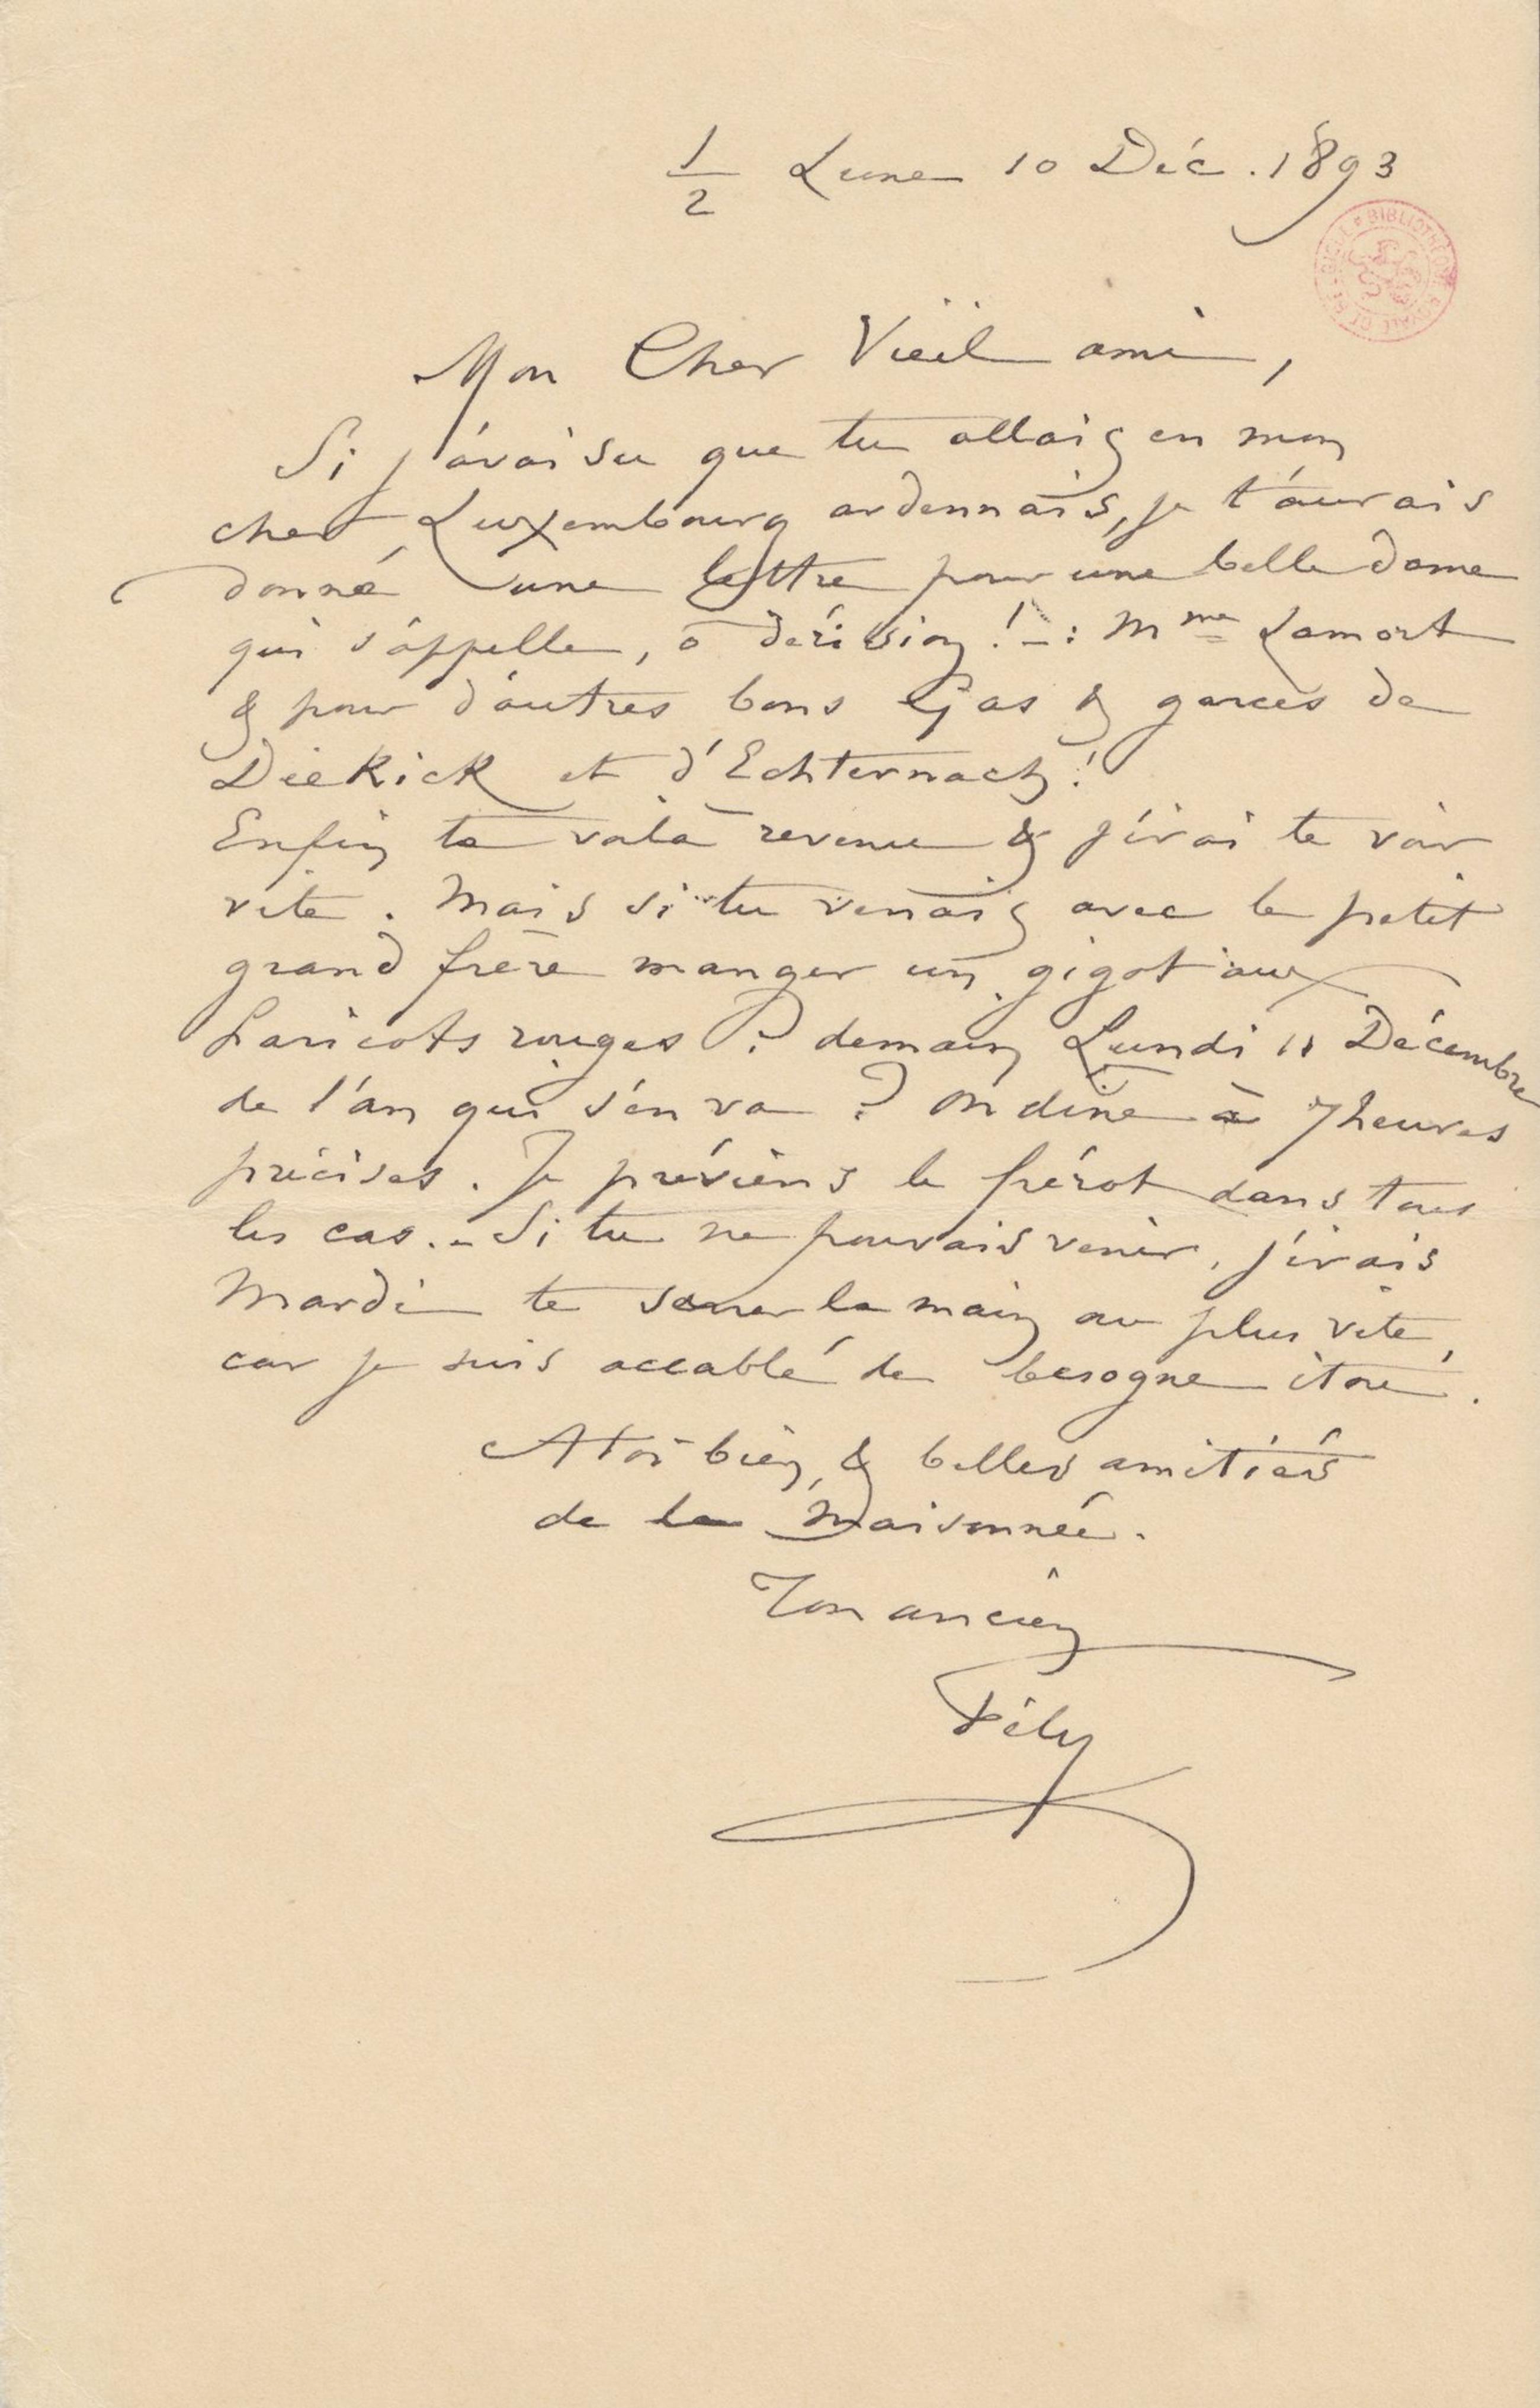 1/2 Lune 10 Déc. 1893
BIBLIOTHÈQUE ROYALE DE BELGIQUE
Mon Cher Vieil ami,
Si j'avai su que tu allais en mon
cher Luxembourg ardennais, je t'aurais
donné une lettre pour une belle dame
qui s'appelle, ô dérision ! – : Mme Lamort
& pour d'autres bons Gas & garces de
Diekick et d'Echternach !
Enfin te voilà revenu & j'irai te voir
vite. Mais si tu venais avec le petit
grand frère manger un gigot aux
haricots rouges ? demain Lundi 11 Décembre
de l'an qui s'en va ? On dine à 7 heures
précises. Je préviens le frérot dans tous
les cas. – Si tu ne pouvais venir, j'irais
Mardi te serrer la main au plus vite,
car je suis accablé de besogne itou.
A toi bien, & belles amitiés
de la Maisonnée.
Ton ancien
Fély